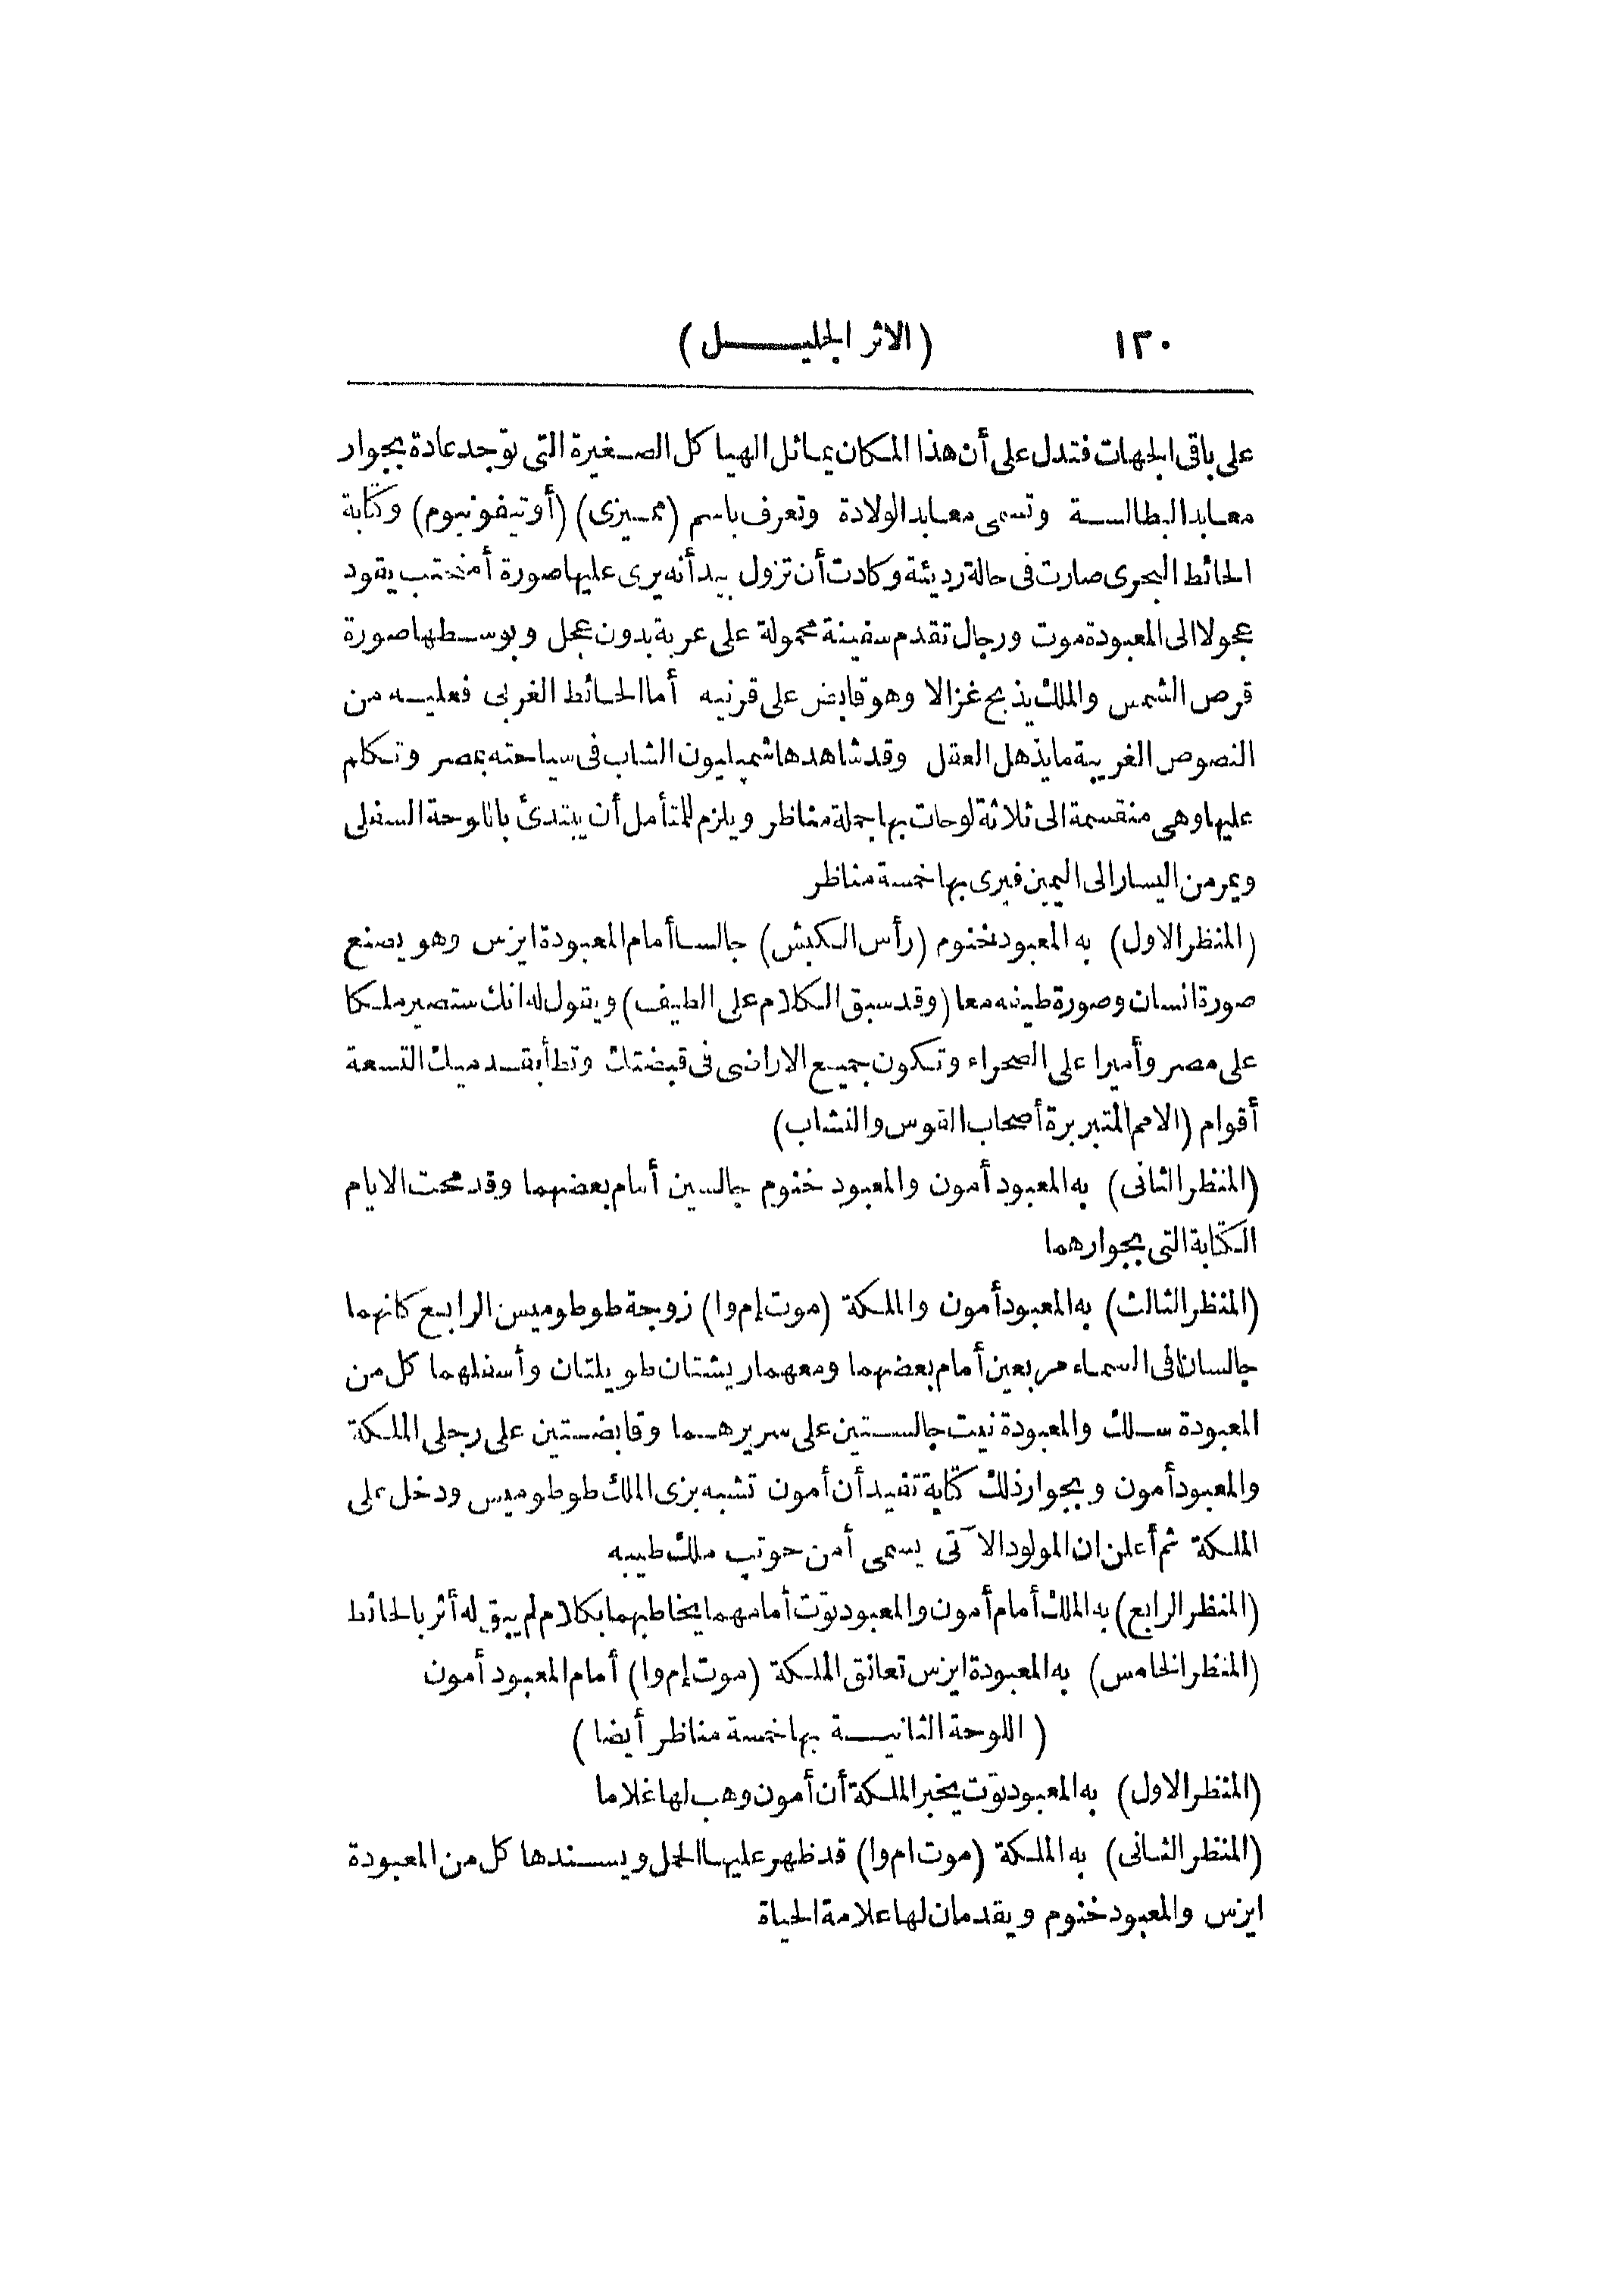 ١٣٠ (الاثر الجليل)
على باقى الجهات فتدل على أن هذا المكان يماثل الهياكل الصغيرة التى توجد عادة بجوار
معابد البطالسة وتسمى معابد الولادة وتعرف باسم (ممسيزى) (أوتيفونيوم) وكتابة
الحائط البحرى صارت فى حالة رديئة وكادت أن تزول بيد أنه يرى عليها صورة أمنحتب يقود
عجولا الى المعبودة موت ورجال تقدم سفينة محمولة على عربة بدون عجل وبوسطها صورة
قرص الشمس والملك يذبح غزالا وهو قابض على قرنيه أما الحائط الغربى فعليه من
النصوص الغريبة ما يذهل العقل وقد شاهدها شمبليون الشاب فى سياحته بمصر وتكلم
عليها وهى منقسمة الى ثلاثة لوحات بها جملة مناظر ويلزم للتأمل أن يبتدئ باللوحة السفلى
ويمر من اليسار الى اليمين فيرى بها خمسة مناظر
(المنظر الاول) به المعبود خنوم (رأس الكبش) جالسا أمام المعبودة ايزس وهو يصنع
صورة انسان وصورة طيفه معا (وقد سبق الكلام على الطيف) ويقول له انك ستصير ملكا
على مصر وأميرا على الصحراء وتكون جميع الاراضى فى قبضتك وتطأ بقدميك التسعة
أقوام (الامم المتبربرة أصحاب القوس والنشاب)
(المنظر الثانى) به المعبود أمون والمعبود خنوم جالسين أمام بعضهما وقد محت الايام
الكتابة التى بجوارهما
(المنظر الثالث) به المعبود أمون والملكة (موت إم وا) زوجة طوطوميس الرابع كانهما
جالسان فى السماء مربعين أمام بعضهما ومعهما ريشتان طويلتان وأسفلهما كل من
المعبودة سلك والمعبودة نيت جالستين على سريرهما وقابضتين على رجلى الملكة
والمعبود أمون وبجوار ذلك كتابة تفيد أن أمون تشبه بزى الملك طوطوميس ودخل على
الملكة ثم أعلن ان المولود الآتى يسمى أمن حوتب ملك طيبه
(المنظر الرابع) به الملك أمام أمون والمعبود توت أمامهما يخاطبهما بكلام لم يبق له أثر بالحائط
(المنظر الخامس) به المعبودة ايزس تعانق الملكة (موت إم وا) أمام المعبود أمون
(اللوحة الثانية بها خمسة مناظر أيضا)
(المنظر الاول) به المعبود توت يخبر الملكة أن أمون وهب لها غلاما
(المنظر الثانى) به الملكة (موت ام وا) قد ظهر عليها الحمل ويسندها كل من المعبودة
ايزس والمعبود خنوم ويقدمان لها علامة الحياة